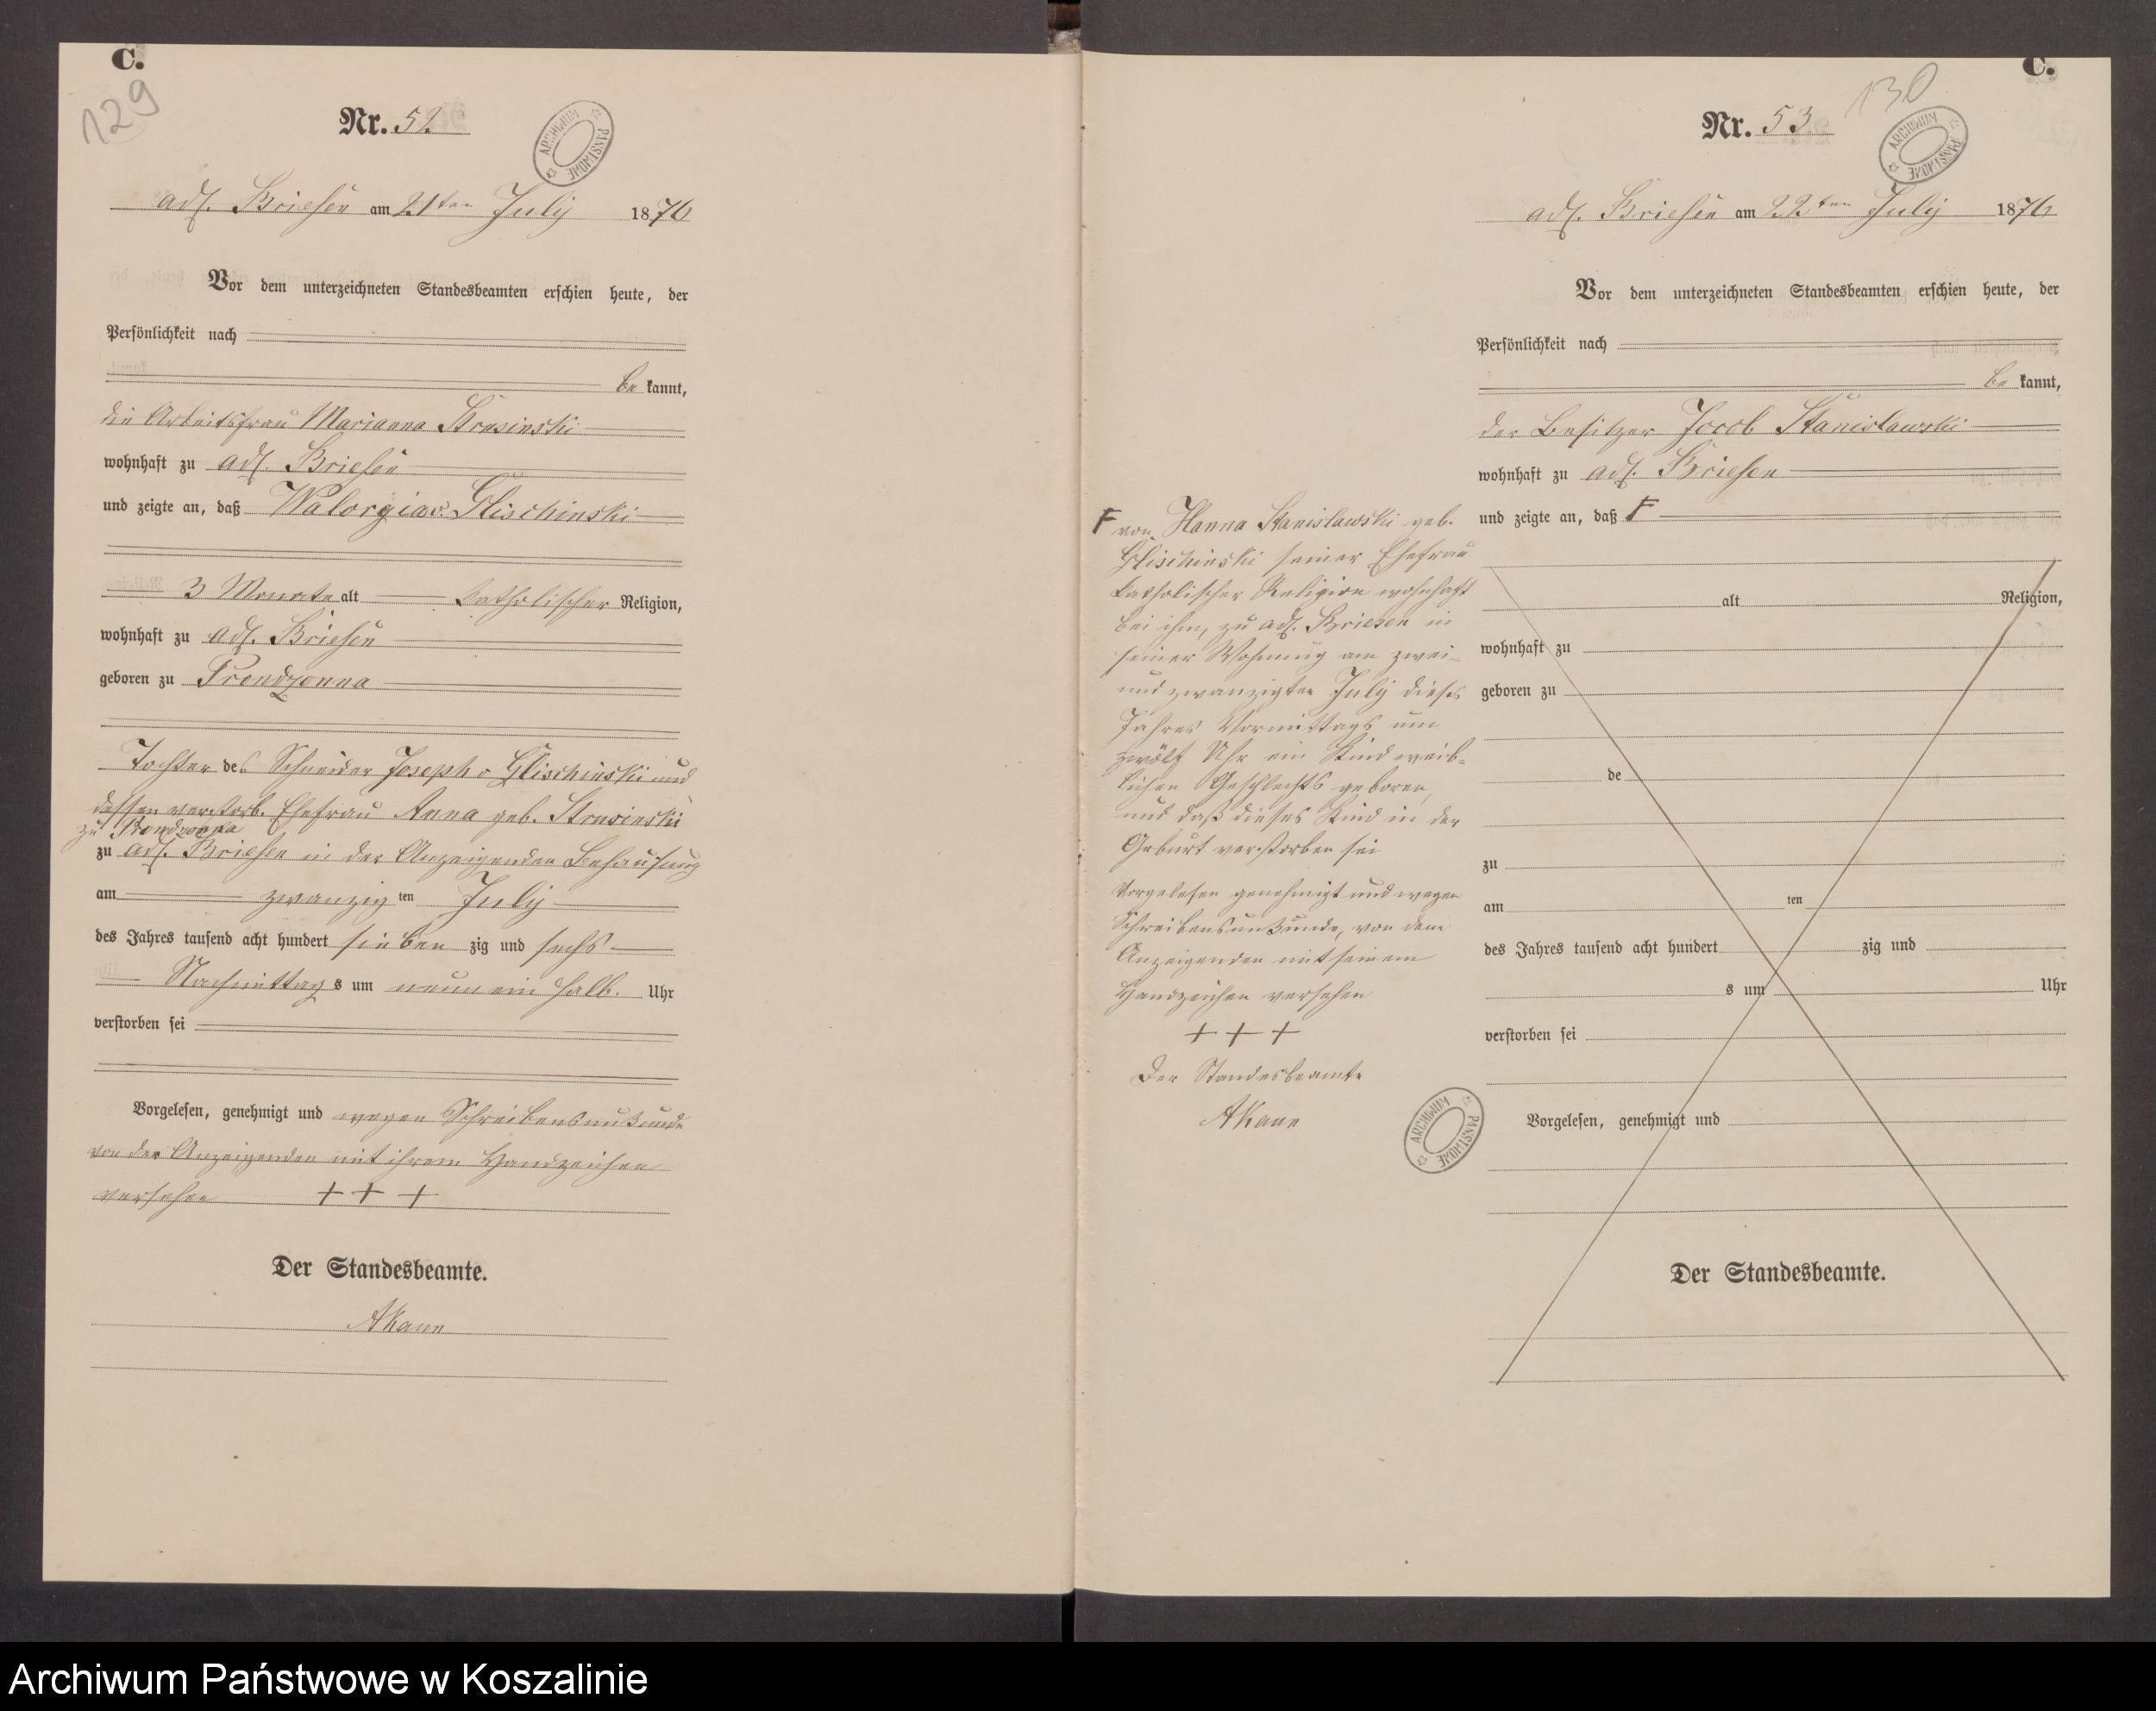 C.
129
Nr. 52
ARCHIWUM PAŃSTWOWE
adl. Briesen am 21ten July 1876
Vor dem unterzeichneten Standesbeamten erschien heute, der
Persönlichkeit nach
be kannt,
die Arbeitsfrau Marianna Strusinski
wohnhaft zu adl. Briesen
und zeigte an, daß Walorgia v. Glischinski
3 Monate alt katholischer Religion,
wohnhaft zu adl. Briesen
geboren zu Prondzonna
Tochter des Schneider Joseph v Glischinski und
dessen verstorb. Ehefrau Anna geb. Strusinski
zu Prondzonna
zu adl. Briesen in der Anzeigenden Behausung
am zwanzig ten July
des Jahres tausend acht hundert sieben zig und sechs
Nachmittag s um neun ein halb. Uhr
verstorben sei
Vorgelesen, genehmigt und wegen Schreibensunkunde
von der Anzeigenden mit ihrem Handzeichen
versehen + + +
Der Standesbeamte.
AKaun
C.
130
Nr. 53
ARCHIWUM PAŃSTWOWE
adl. Briesen am 22ten July 1876
Vor dem unterzeichneten Standesbeamten erschien heute, der
Persönlichkeit nach
be kannt,
der Besitzer Jocob Stanislawski
wohnhaft zu adl. Briesen
und zeigte an, daß F
alt Religion,
wohnhaft zu
geboren zu
de
zu
am ten
des Jahres tausend acht hundert zig und
s um Uhr
verstorben sei
Vorgelesen, genehmigt und
Der Standesbeamte.
F von Hanna Stanislawski geb.
Glischinski seiner Ehefrau
katholischer Religion wohnhaft
bei ihm, zu adl. Briesen in
seiner Wohnung am zwei-
und zwanzigten July dieses
Jahres Vormittags um
zwölf Uhr ein Kind weib-
lichen Geschlechts geboren,
und daß dieses Kind in der
Geburt verstorben sei
Vorgelesen genehmigt und wegen
Schreibensunkunde, von dem
Anzeigenden mit seinem
Handzeichen versehen
+ + +
Der Standesbeamte
AKaun
ARCHIWUM PAŃSTWOWE
Archiwum Państwowe w Koszalinie